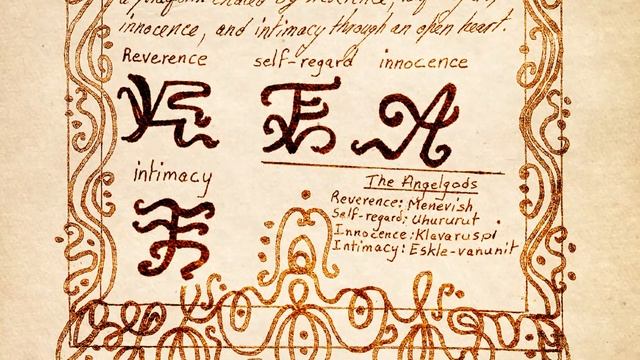 innocence, and intimacy through an open heart.
Reverence self-regard innocence
intimacy
The Angelgods
Reverence: Menevish
Self-regard: Uhururut
Innocence: Klavaruspi
Intimacy: Eskle-vanunit